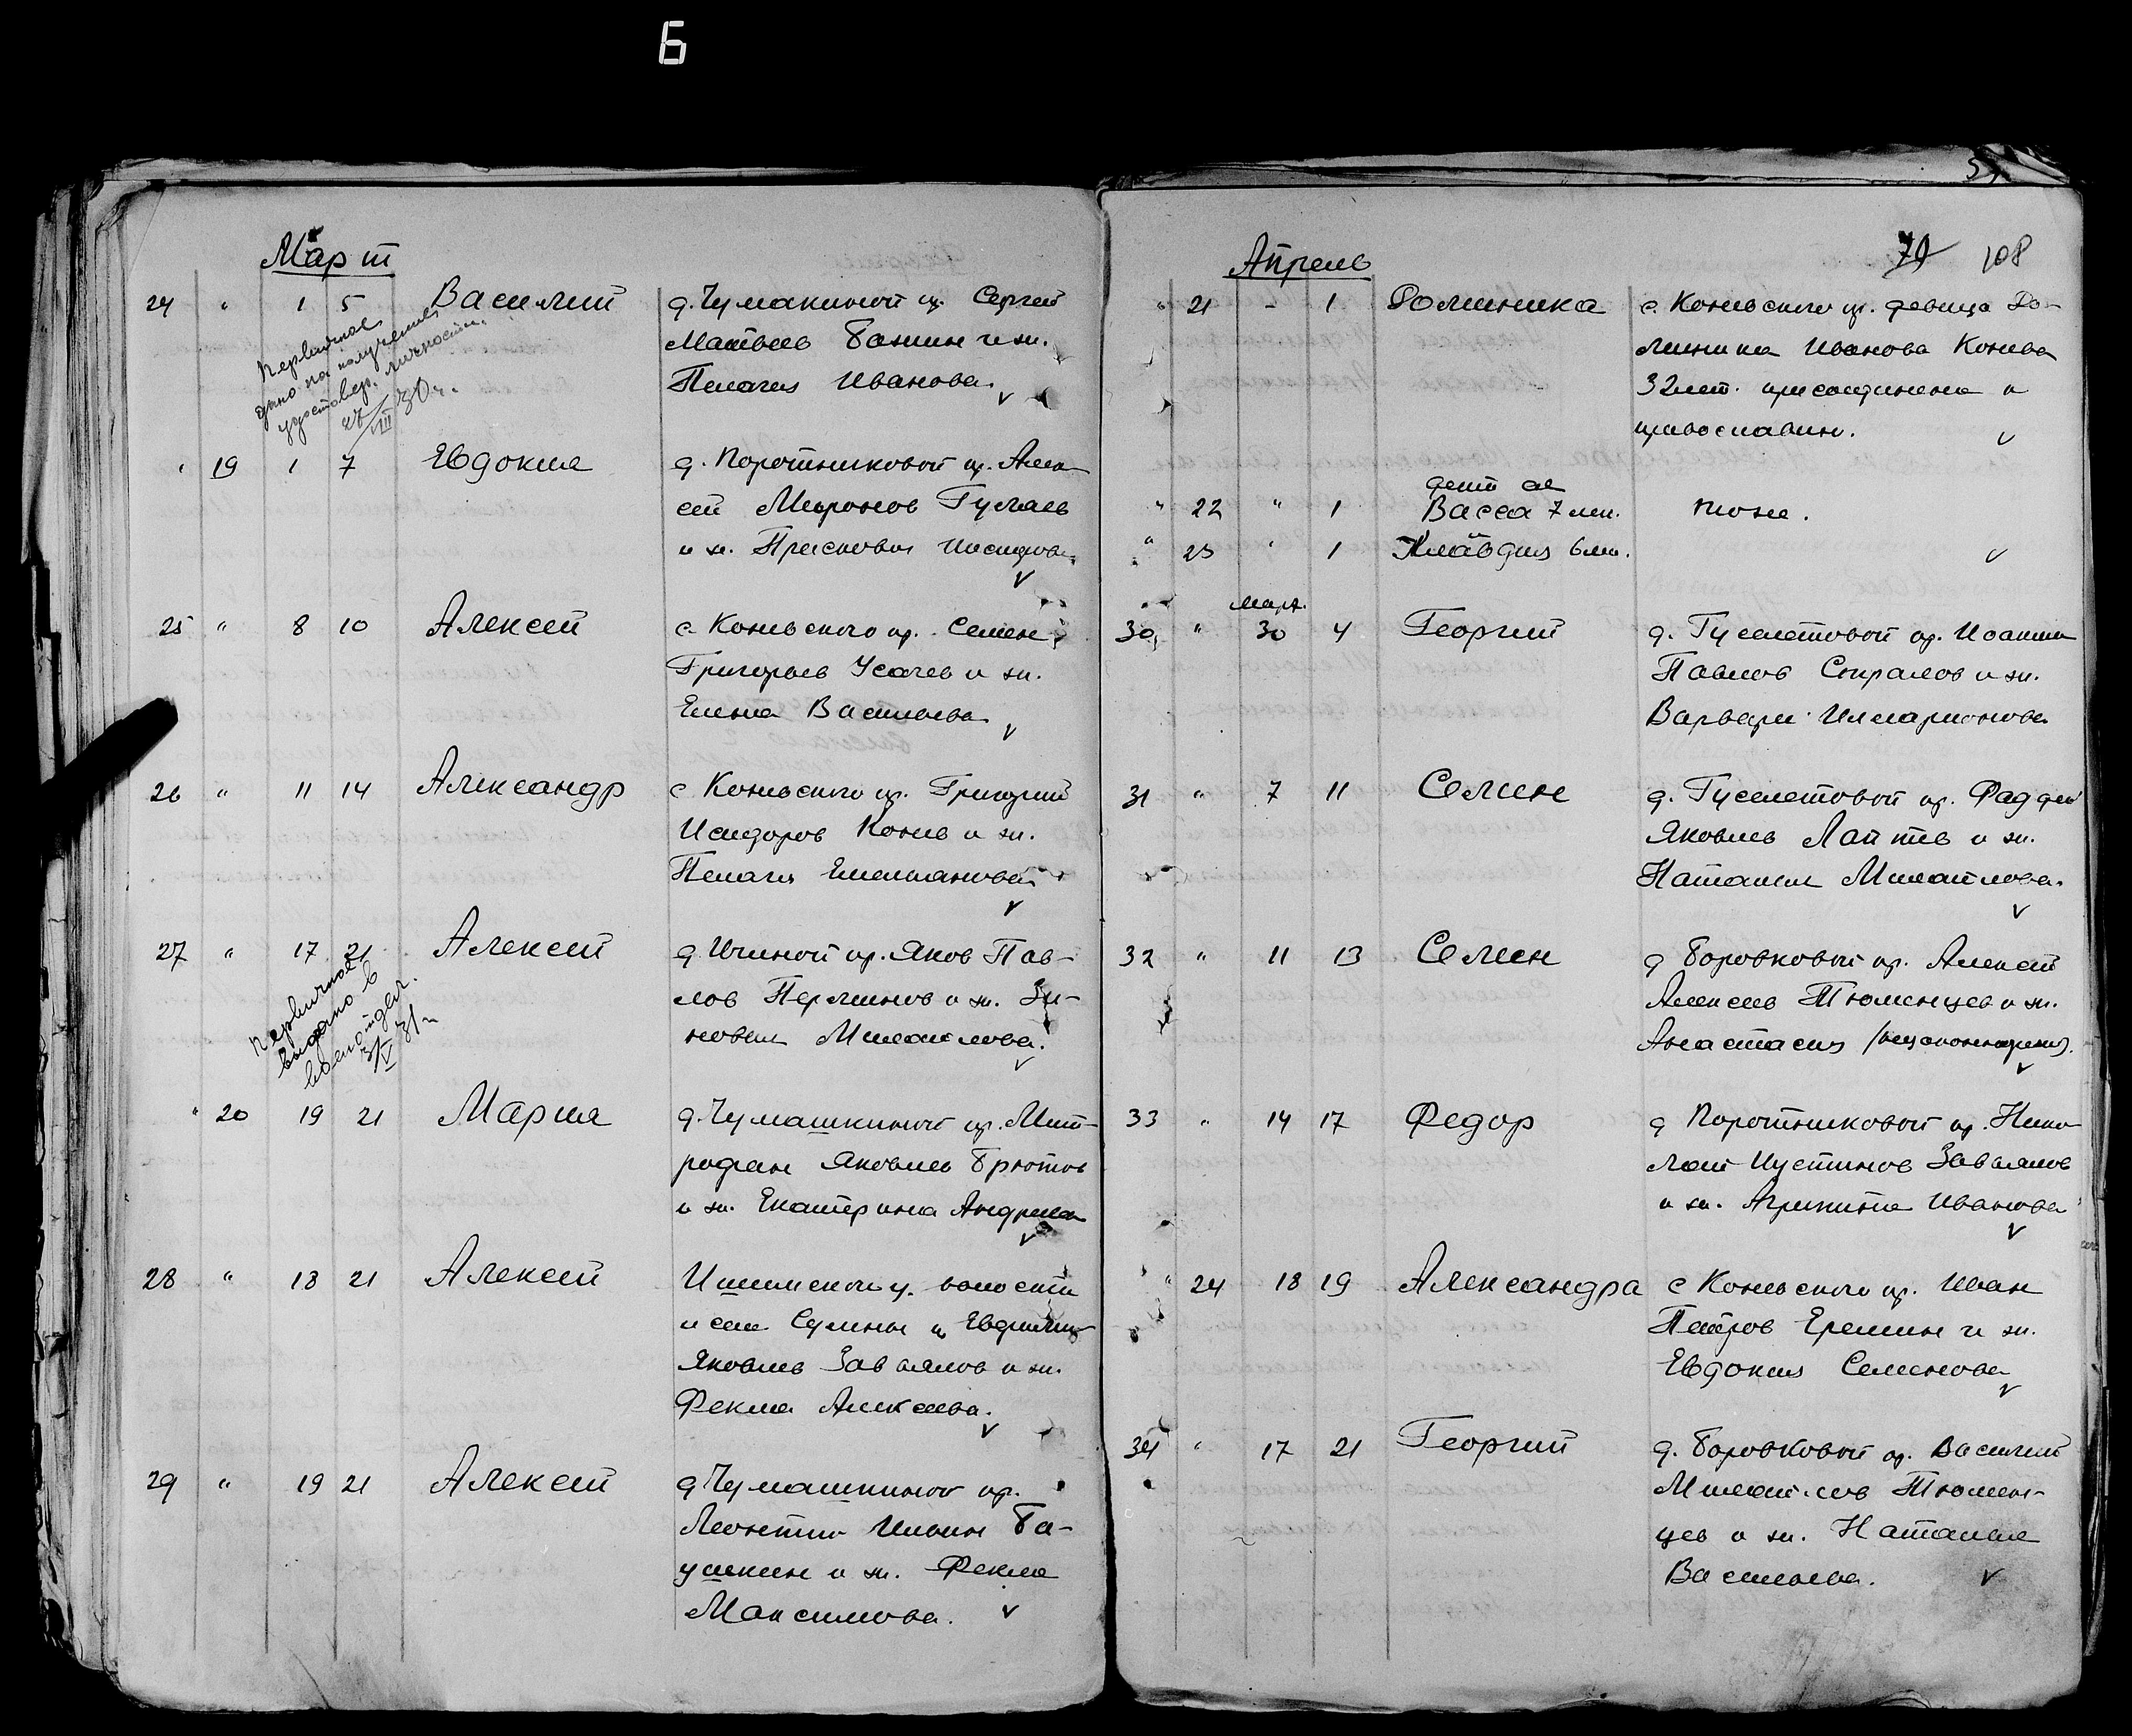 Б
Март
24 " 1 5 Василий д. Чумакиной кр. Сергей
Матвеев Банин и ж.
Пелагия Иванова.
Первичное
дано на получение
удостовер. личности.
27/VIII 30 г.
" 19 1 7 Евдокия д. Поротниковой кр. Алек-
сей Миронов Гуляев
и ж. Прасковья Исидрова
25 " 8 10 Алексей с. Коневского кр. Семен
Григорьев Усачев и ж.
Елена Васильева
26 " 11 14 Александр с Коневского кр. Григорий
Исидоров Конев и ж.
Пелагия Емельянова
27 " 17 21 Алексей д Ичиной кр. Яков Пав-
лов Перминов и ж. Зи-
новия Михайлова.
Первичное
выдано в
31/V 31 г
" 20 19 21 Мария д. Чумашкиной кр. Мит-
рофан Яковлев Брютов
и ж. Екатерина Андреева
28 " 18 21 Алексей Ишимского у. волости
и села Сумны Евфимий
Яковлев Завьялов и ж.
Фекла Алексеева.
29 " 19 21 Алексей д Чумашкиной кр.
Леонтий Ильин Ба-
ушкин и ж. Фекла
Максимова.
Апрель
79 108
" 21 - 1 Домника с. Коневского кр. девица До-
мника Иванова Конева
32 лет. присоединена к
православию.
дети ее
" 22 " 1 Васса 7 лет. тоже.
" 23 " 1 Клавдия 6 лет.
март.
30 " 30 4 Георгий д. Гуселетовой кр. Иоаким
Павлов Стралов и ж.
Варвара Илларионова
31 " 7 11 Семен д. Гуселетовой кр. Фаддей
Яковлев Лаптев и ж.
Наталия Михайлова.
32 " 11 13 Семен д Боровковой кр. Алексей
Алексеев Тюменцев и ж.
Анастасия /незаконнорожд).
33 " 14 17 Федор д Поротниковой кр. Нико-
лай Иустинов Завьялов
и ж. Агрипина Иванова
" 24 18 19 Александра с Коневского кр. Иван
Петров Еремин и ж.
Евдокия Семенова
34 " 17 21 Георгий д. Боровковой кр. Василий
Михайлов Тюмен-
цев и ж. Наталия
Васильева.